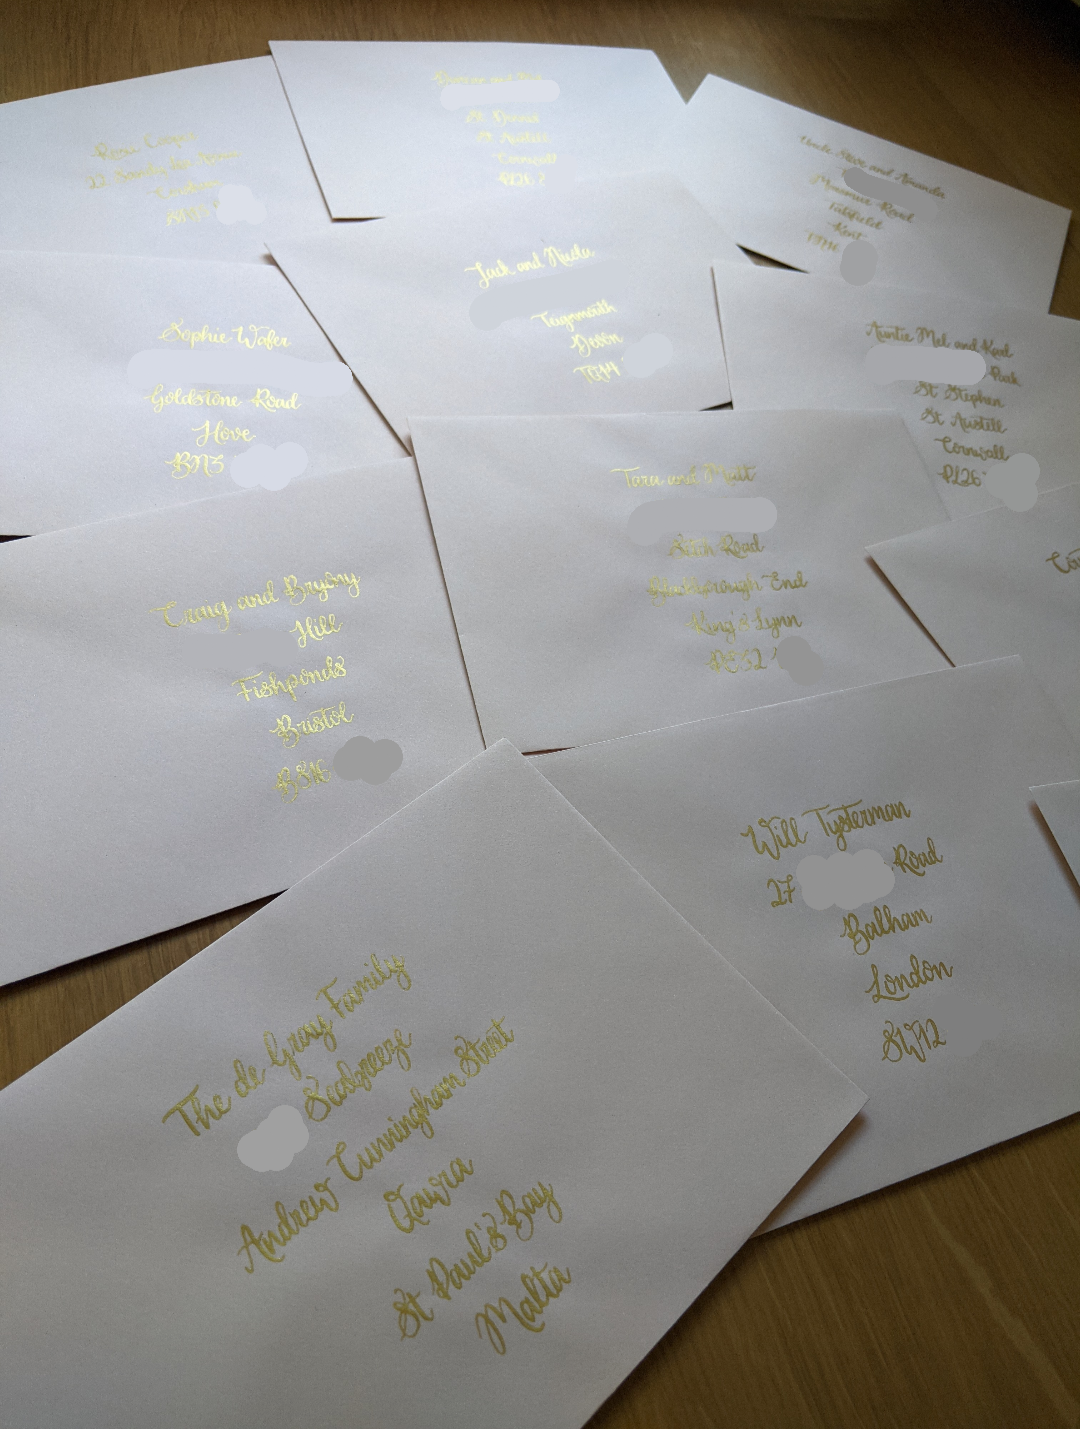 Rosie Cooper
22
St Austell
Cornwall
PL26
Uncle Steve and Amanda
Road
Kent
Jack and Nicola
Teignmouth
Devon
TQ14
Sophie Wafer
Goldstone Road
Hove
BN3
Auntie Mel and Karl
Park
St Stephen
St Austell
Cornwall
PL26
Tara and Matt
Road
Blackborough End
King's Lynn
PE32
Craig and Bryony
Hill
Fishponds
Bristol
BS16
Will Tysterman
27 Road
Balham
London
SW12
The de Gray Family
Seabreeze
Andrew Cunningham Street
Qawra
St Paul's Bay
Malta